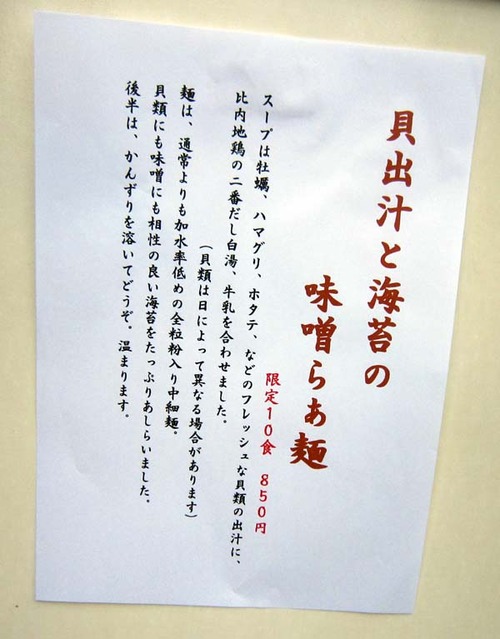 貝出汁と海苔の
味噌らぁ麺
限定10食 850円
スープは牡蠣、ハマグリ、ホタテ、などのフレッシュな貝類の出汁に、
比内地鶏の二番だし白湯、牛乳を合わせました。
(貝類は日によって異なる場合があります)
麺は、通常よりも加水率低めの全粒粉入り中細麺。
貝類にも味噌にも相性の良い海苔をたっぷりあしらいました。
後半は、かんずりを溶いてどうぞ。温まります。